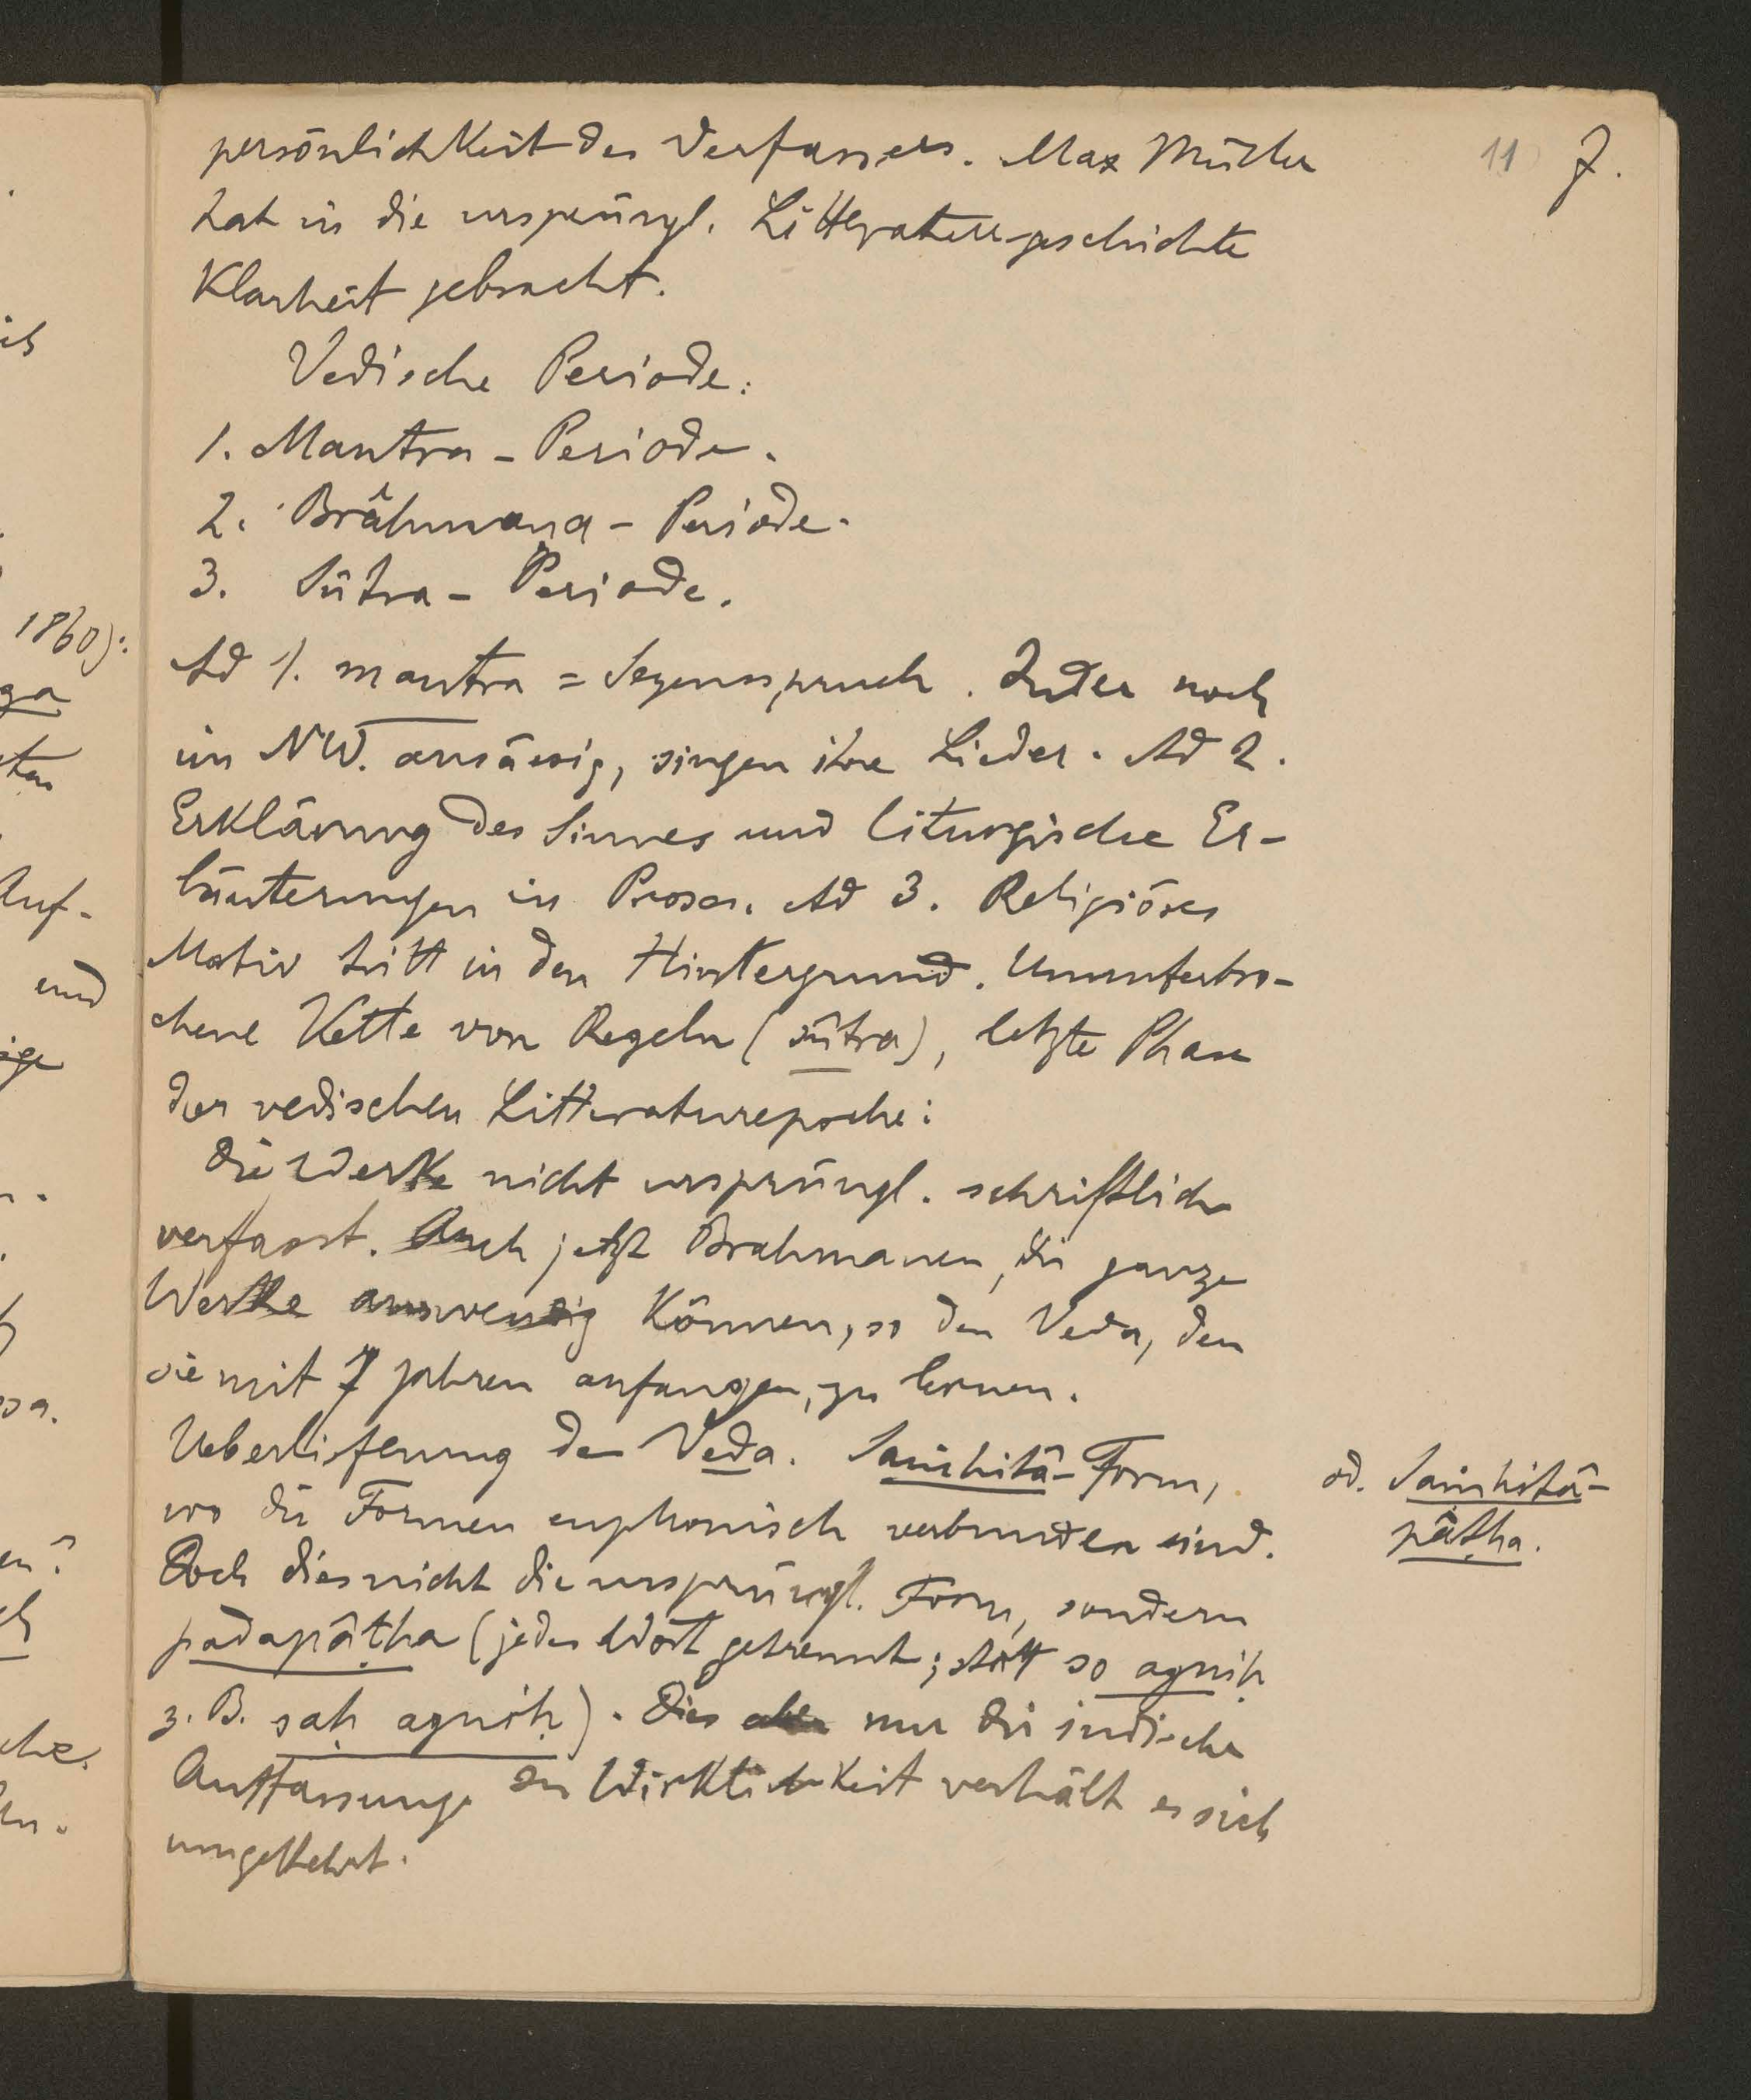 11 7.
persönlichkeit des Verfassers. Max Müller
hat in die ursprüngl. Litteraturgeschichte
Klarheit gebracht.
Vedische Periode:
1. Mantra - Periode.
2. Brâhmaṇa - Periode.
3. Sûtra - Periode.
Ad 1. mantra = Segensspruch. Inder noch
im NW. ansässig, singen ihre Lieder. Ad 2.
Erklärung des Sinnes und liturgische Er-
läuterungen in Prosa. Ad 3. Religiöses
Motiv tritt in den Hintergrund. Ununterbro-
chene Kette von Regeln (sûtra), letzte Phase
der vedischen Litteraturepoche:
Die Werke nicht ursprüngl. schriftlich
verfasst. Auch jetzt Brahmanen, die ganze
Werke auswendig können, so den Veda, den
sie mit 7 Jahren anfangen, zu lernen.
Ueberlieferung des Veda. Saṁhitâ-Form,
wo die Formen euphonisch verbunden sind.
od. Saṁhitâ-
pâṭha.
Doch dies nicht die ursprüngl. Form, sondern
padapâṭha (jedes Wort getrennt; statt so agniḥ
z. B. saḥ agniḥ). Dies aber nur die indische
Auffassung. In Wirklichkeit verhält es sich
umgekehrt.
1860):
ga
Auf-
und
ige